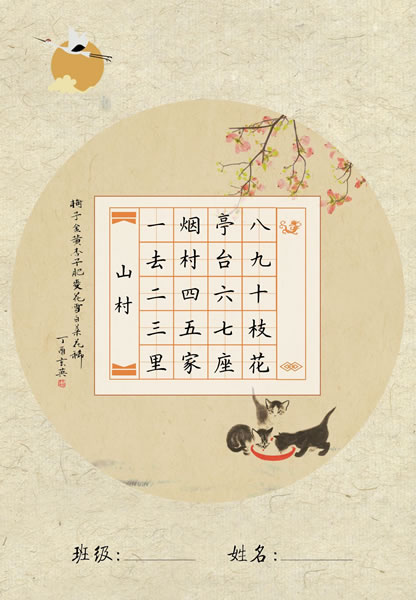 山村
一去二三里
烟村四五家
亭台六七座
八九十枝花
梅子金黄杏子肥麦花雪白菜花稀
丁酉
班级：
姓名：